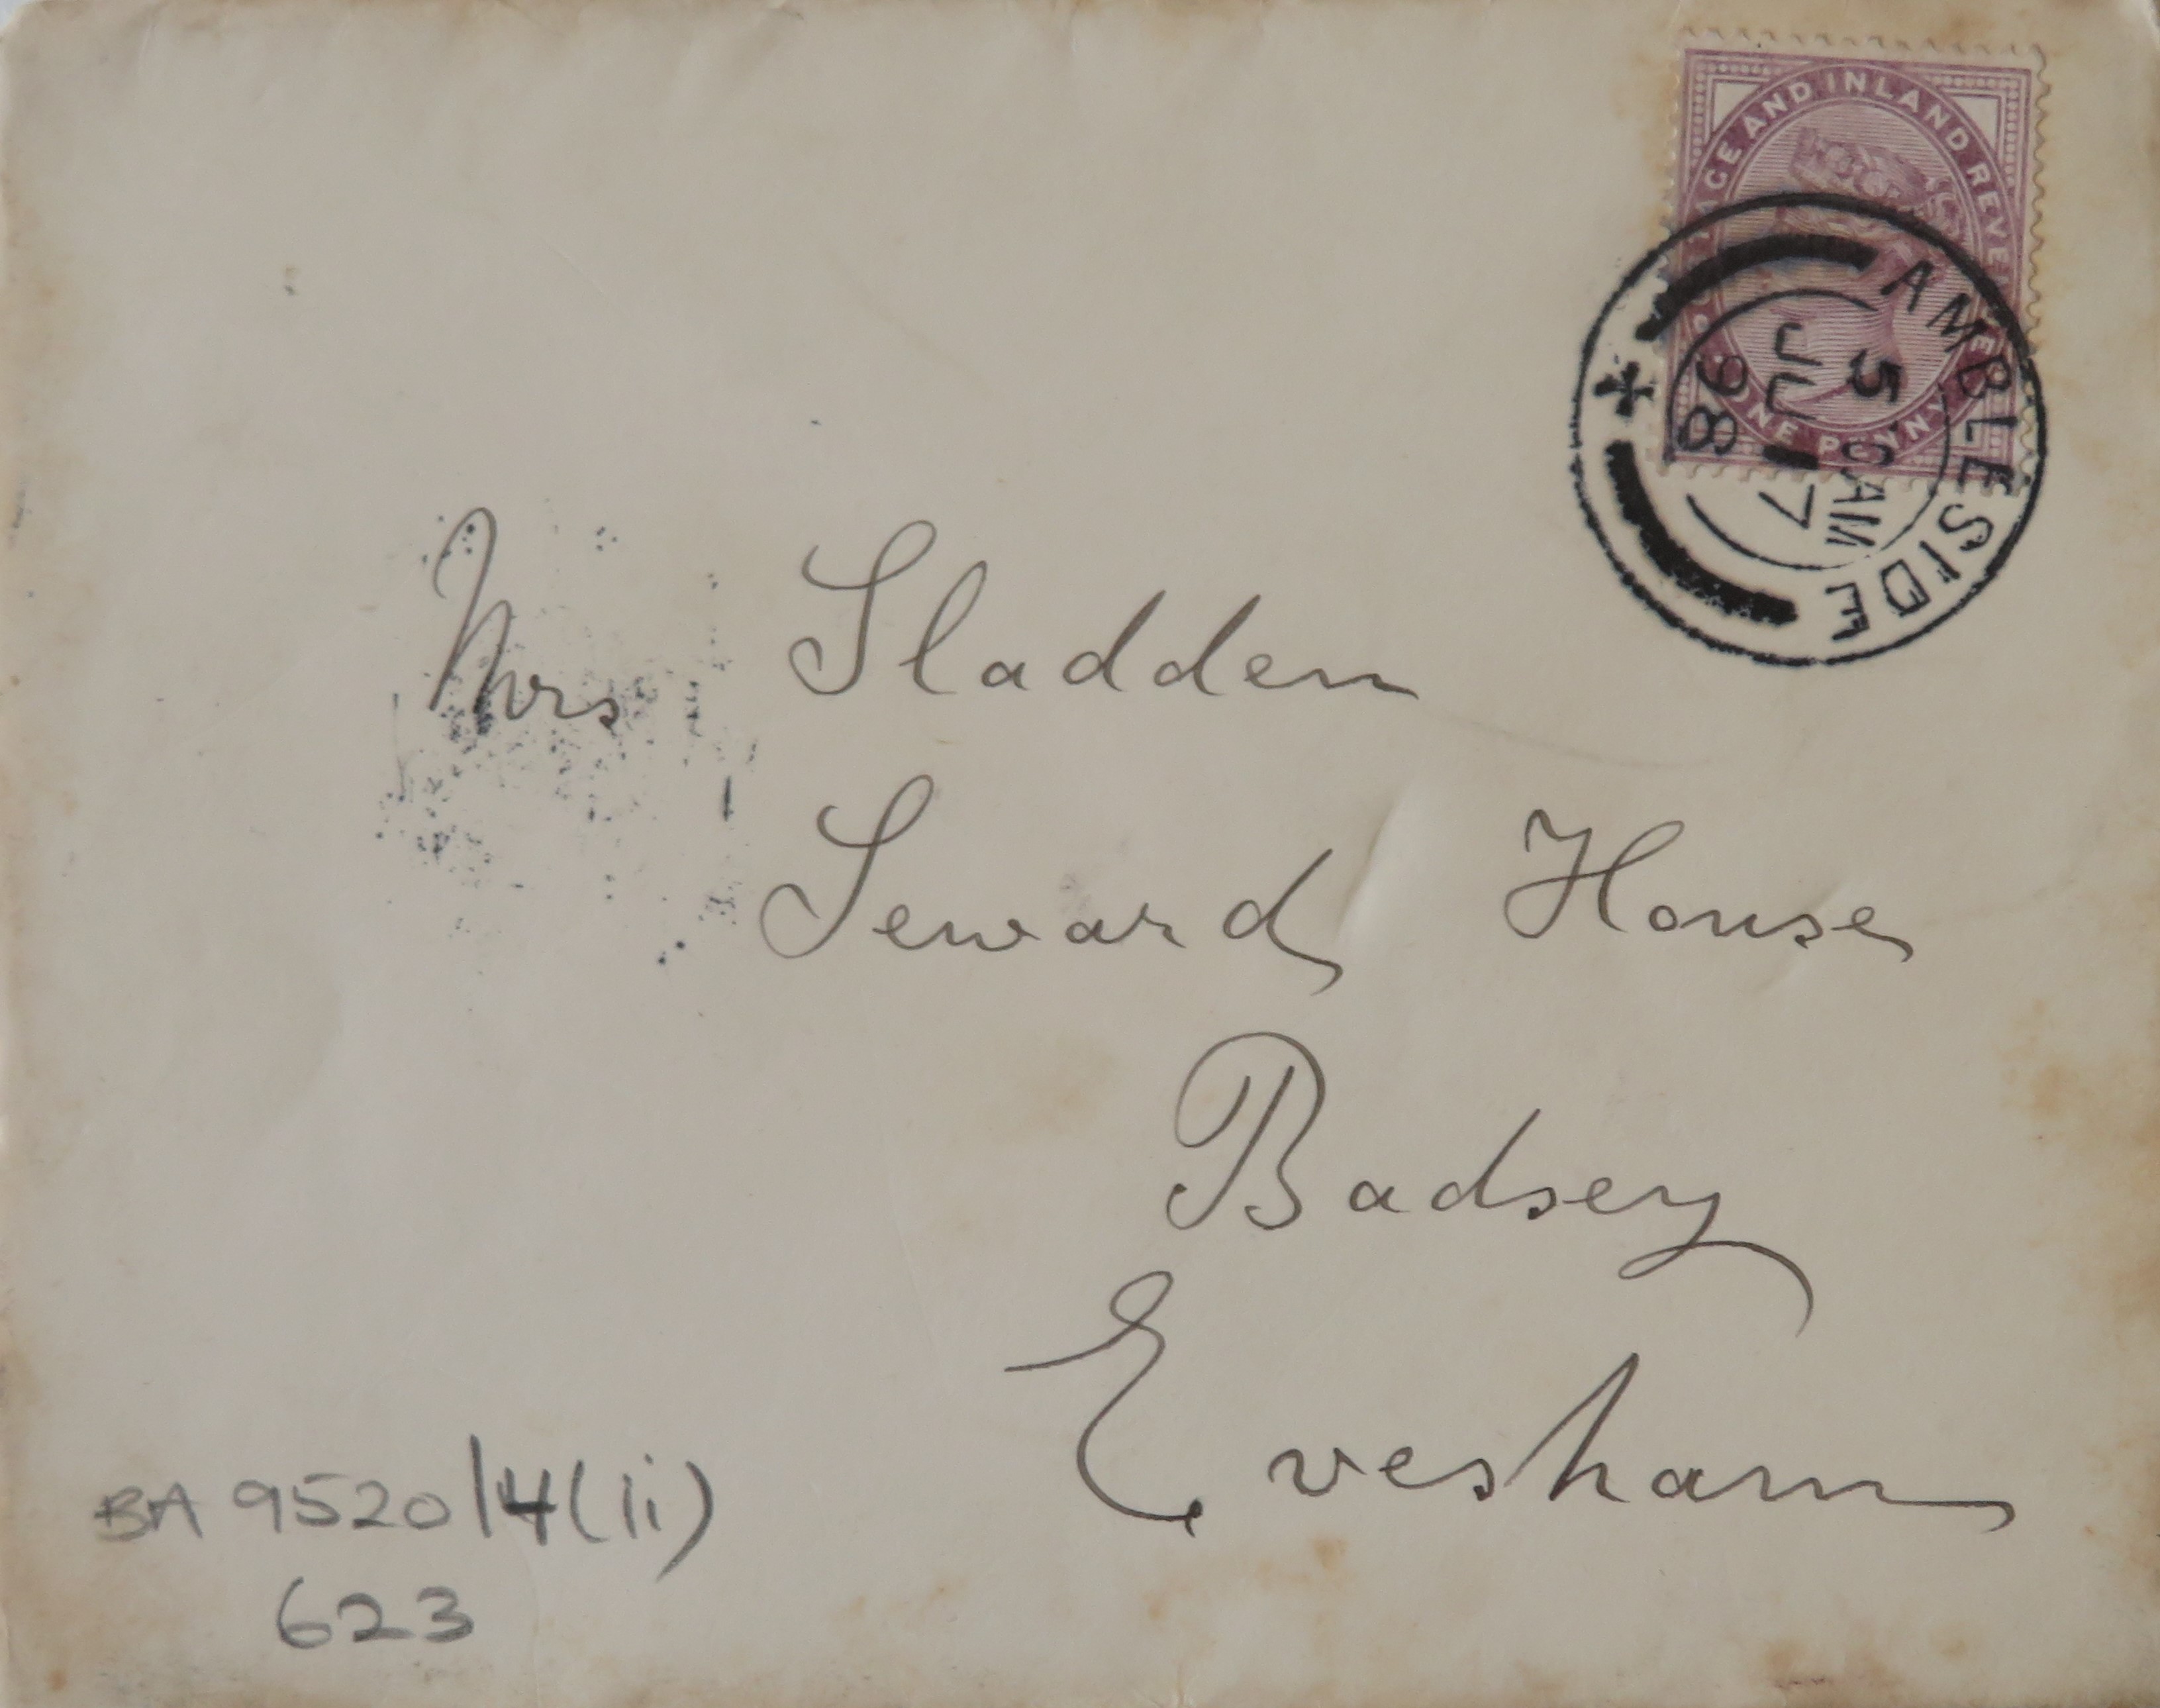 AGE AND INLAND REVE E
ONE PENNY
AMBLESIDE
5 AM
JU 17
98
Mrs Sladden
Seward House
Badsey
Evesham
BA 9520/14(ii)
623